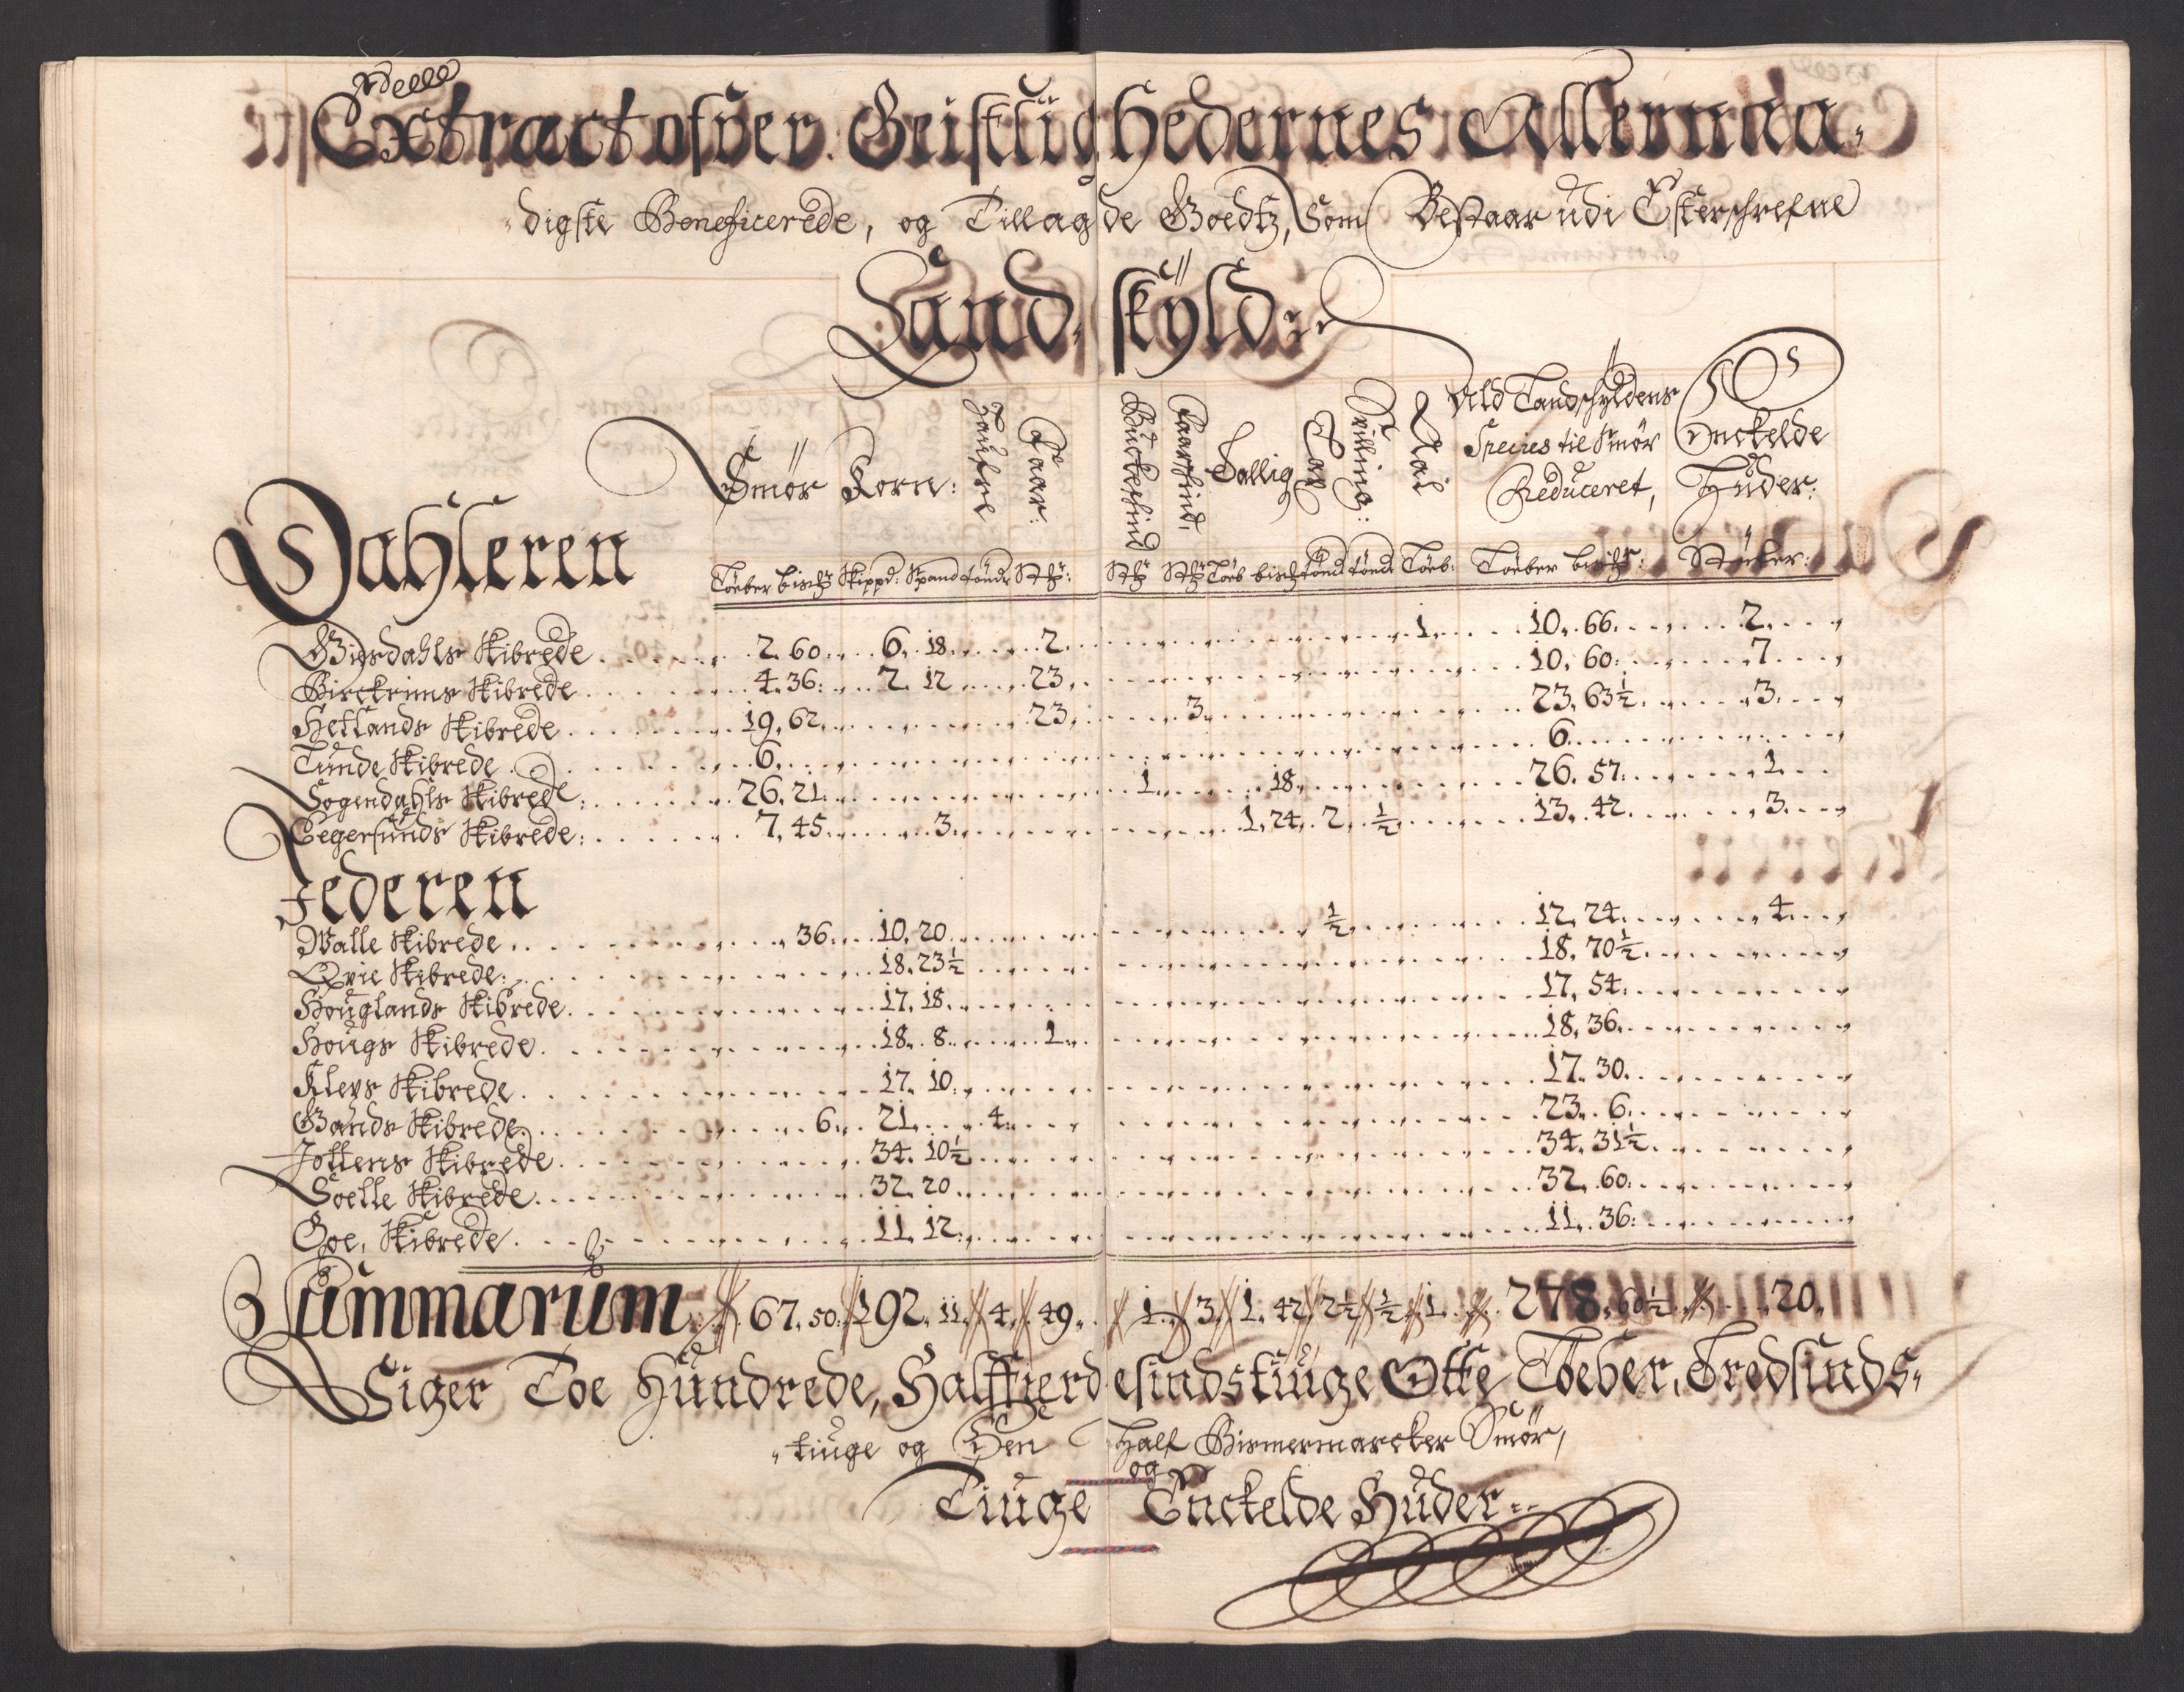 Extract ofver Geistlighedernes Allernaa-
digste Beneficerede, og Tillagde Goedtz, Som Bestaar udi Efterschrefne
Land- skÿld
Smør Korn: Faar: Bucheskind Faarskind Tallig Aal Ald Landschyldens Species til Smør Reduceret, Enckelde Huder:
Dahleren
Løeber bisch Skippd: Spand tønde Stk: Stk Stk Løeb bisch tønd tønd Løeb: Løeber bisch: Støcker:
Giesdahls Skibrede 2. 60. 6. 18. 2. 1. 10. 66. 2.
Birckrims Skibrede 4. 36. 2. 12. 23. 10. 60. 7.
Hetlands Skibrede 19. 62. 23. 3. 23. 63½. 3.
Lunde Skibrede 6. 6.
Sogendahls Skibrede: 26. 21. 1. 18. 26. 57. 1.
Eegersunds Skibrede: 7. 45. 3. 1. 24. 2. ½ 13. 42. 3.
Jederen
Walle Skibrede 36. 10. 20. ½ 12. 24. 4.
Qvie Skibrede: 18. 23½ 18. 70½
Houglands Skibrede. 17. 18. 17. 54.
Hougs Skibrede. 18. 8. 1. 18. 36.
Kleps Skibrede. 17. 10. 17. 30.
Gands Skibrede. 6. 21. 4. 23. 6.
Jottens Skibrede. 34. 10½ 34. 31½
Soelle Skibrede. 32. 20. 32. 60.
Goe, Skibrede. 11. 12. 11. 36.
Summarum 67. 50. 192. 11. 4. 49. 1. 3. 1. 42. 2½ ½ 1. 278. 60½ 20.
Siger Toe Hundrede, Halffierdesindstiuge Otte Løeber, Tredsinds-
-tiuge og Een Half Bismermarcker Smør,
og
Tiuge Enckelde Huder